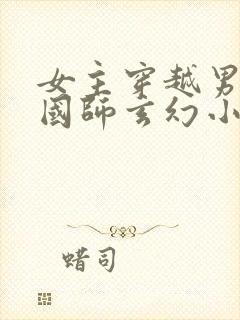 女主穿越男
國師玄幻小
蜡司